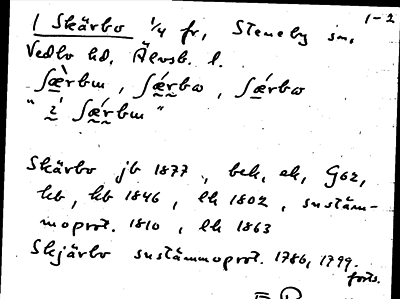 1-2
1 Skärbo 1/4 fr, Steneby sn,
Vedbo hd, Älvsb. l.
ʃæ̀rbɯ, ʃǽrbɷ, ʃǽrbɷ
" i ʃæ̀rbɯ "
Skärbo jb 1877, bek, ek, G62,
hb, kb 1846, lk 1802, sustäm-
moprot. 1810, lk 1863
Skjärbo sustämmoprot. 1786, 1799.
forts.